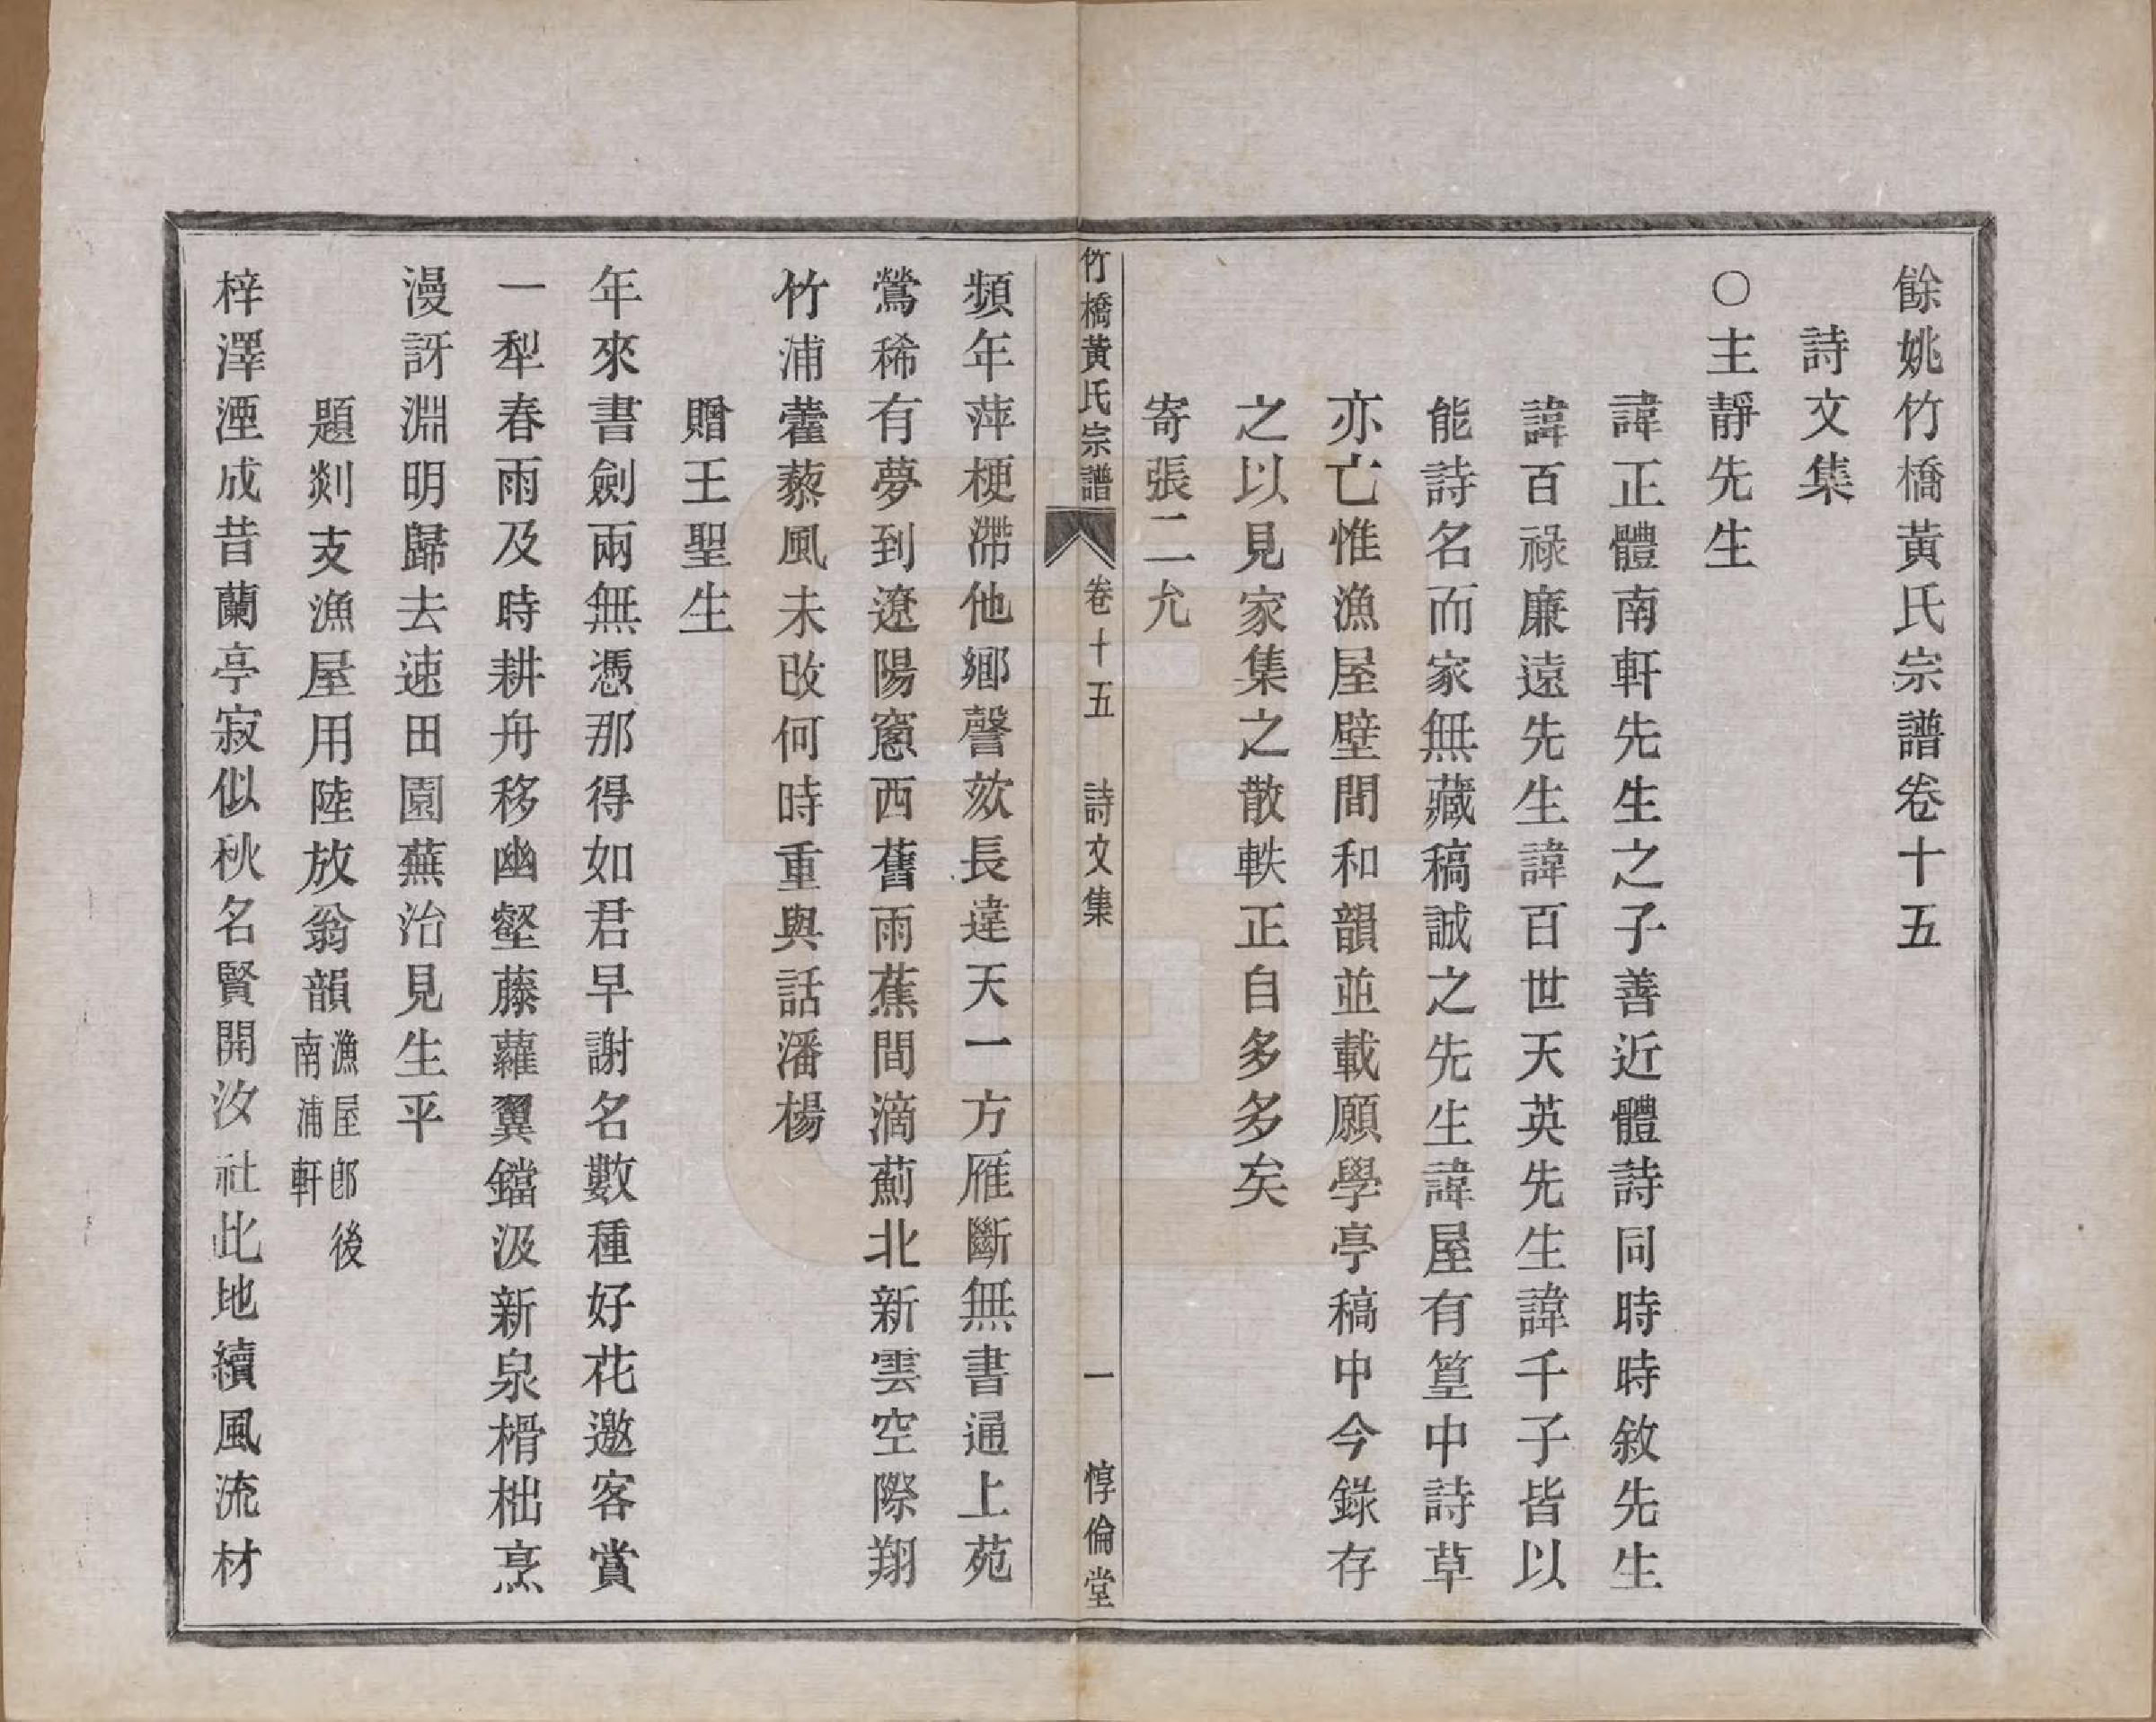 餘姚竹橋黃氏宗譜卷十五
詩文集
○主靜先生
諱正體南軒先生之子善近體詩同時時敘先生
諱百祿廉遠先生諱百世天英先生諱千子皆以
能詩名而家無藏稿誠之先生諱屋有篁中詩草
亦亡惟漁屋壁間和韻並載願學亭稿中今錄存
之以見家集之散軼正自多多矣
寄張二允
竹橋黃氏宗譜 卷十五 詩文集 一 惇倫堂
頻年萍梗滯他鄉謦欬長違天一方雁斷無書通上苑
鶯稀有夢到遼陽窻西舊雨蕉間滴薊北新雲空際翔
竹浦藿藜風未改何時重與話潘楊
贈王聖生
年來書劍兩無憑那得如君早謝名數種好花邀客賞
一犁春雨及時耕舟移幽壑藤蘿翼鐺汲新泉榾柮烹
漫訝淵明歸去速田園蕪治見生平
題剡支漁屋用陸放翁韻漁屋卽後南浦軒
梓澤湮成昔蘭亭寂似秋名賢開汝社此地續風流材